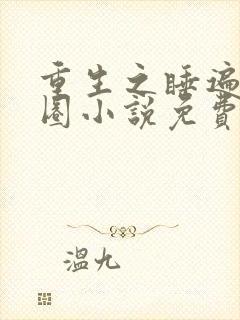 重生之睡遍
圈小說免費
溫九